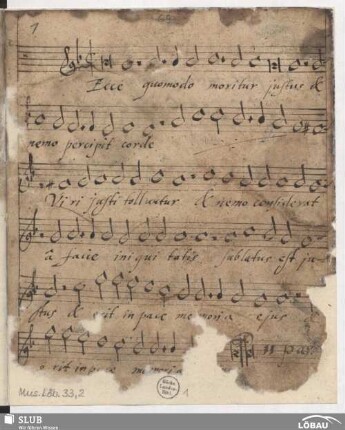 1
Ecce quomodo moritur justus &
nemo percipit corde
Vi ri justi tolluntur & nemo considerat
â facie ini qui tatis sublatus est ju
stus & erit in pace me moria ejus
& erit in pace me moria
Mus. Löb. 33,2
1
SLUB
Wir führen Wissen.
LÖBAU